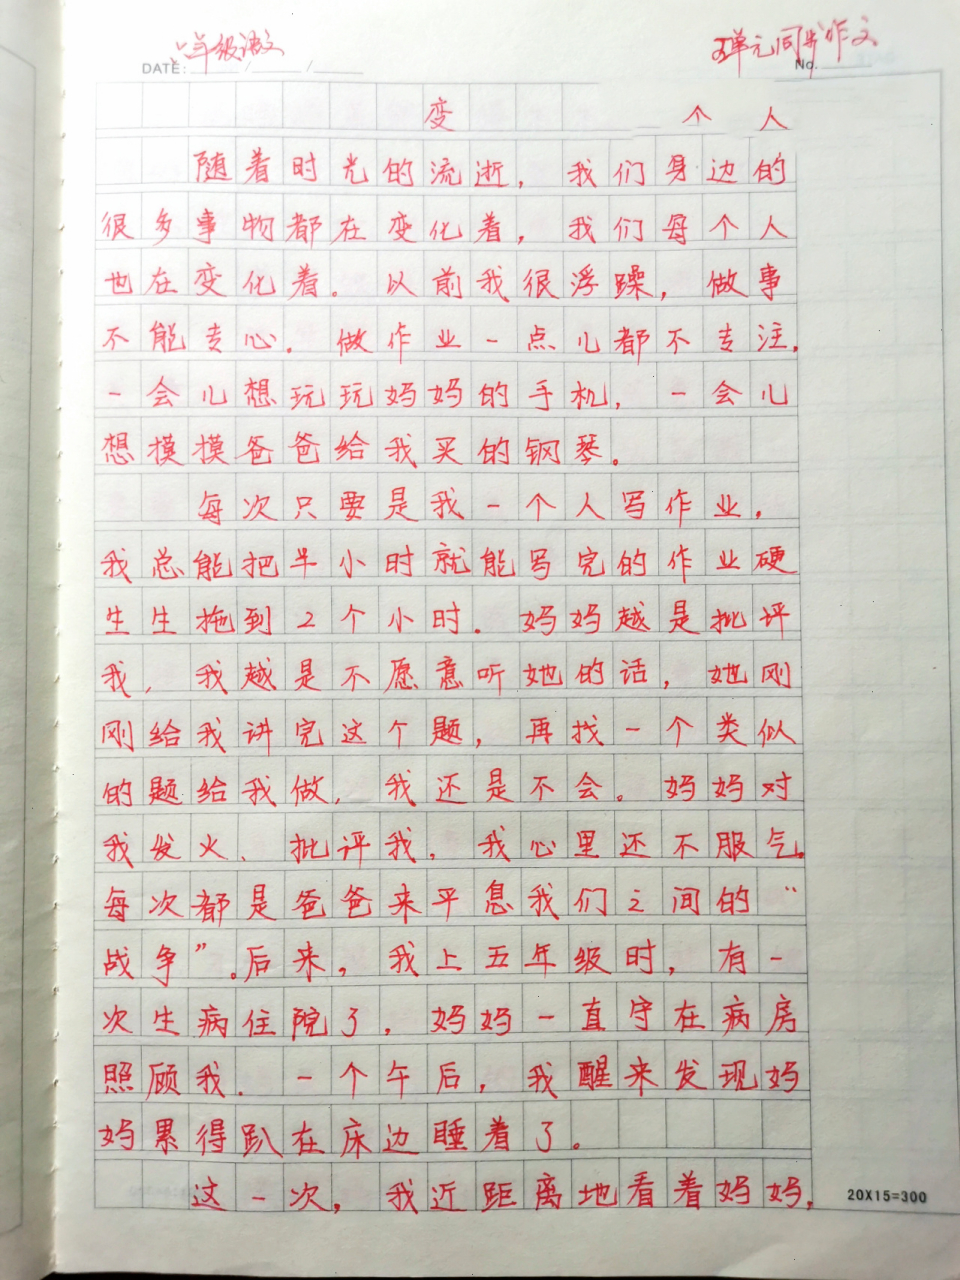 年级语文
单元同步作文
DATE: / /
No.
变 个 人
随着时光的流逝，我们身边的
很多事物都在变化着，我们每个人
也在变化着。以前我很浮躁，做事
不能专心。做作业一点儿都不专注，
一会儿想玩玩妈妈的手机，一会儿
想摸摸爸爸给我买的钢琴。
每次只要是我一个人写作业，
我总能把半小时就能写完的作业硬
生生拖到2个小时。妈妈越是批评
我，我越是不愿意听她的话，她刚
刚给我讲完这个题，再找一个类似
的题给我做，我还是不会。妈妈对
我发火、批评我，我心里还不服气。
每次都是爸爸来平息我们之间的“
战争”。后来，我上五年级时，有一
次生病住院了，妈妈一直守在病房
照顾我。一个午后，我醒来发现妈
妈累得趴在床边睡着了。
这一次，我近距离地看着妈妈，
20X15=300